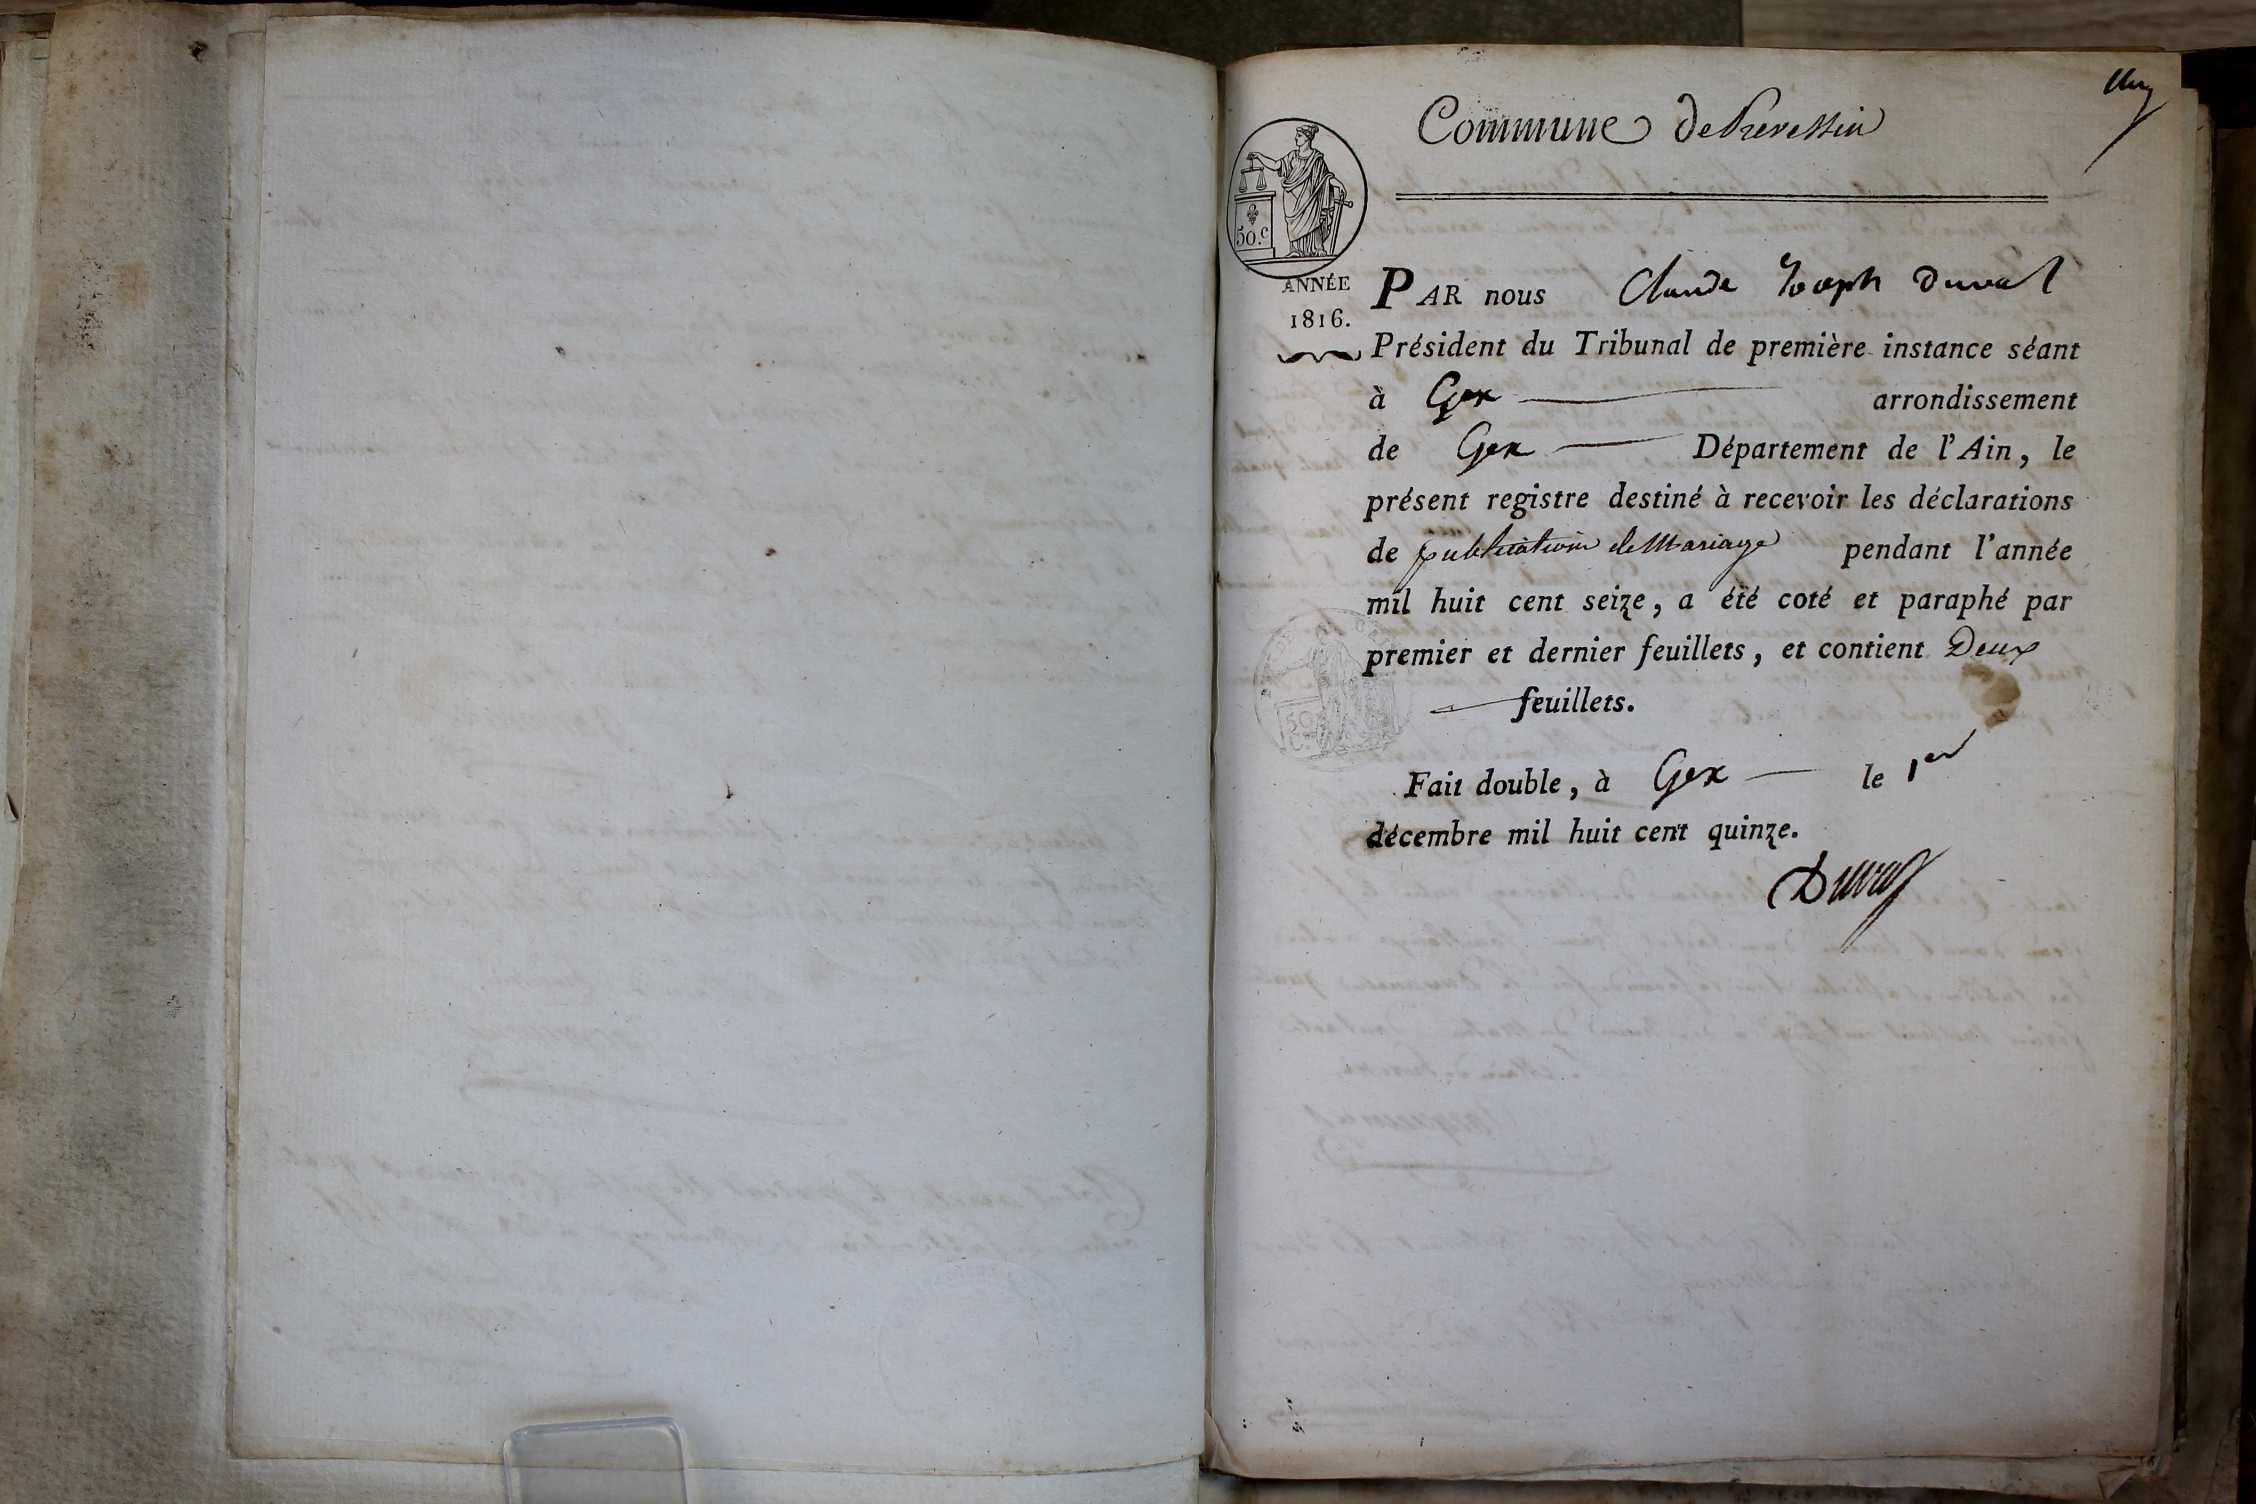 Un
Commune de Prevessin
50.c
ANNÉE
1816.
PAR nous Claude Joseph Duval
Président du Tribunal de première instance séant
à Gex arrondissement
de Gex Département de l'Ain, le
présent registre destiné à recevoir les déclarations
de publication de Mariage pendant l'année
mil huit cent seize, a été coté et paraphé par
premier et dernier feuillets, et contient Deux
feuillets.
Fait double, à Gex le 1er
décembre mil huit cent quinze.
Duval